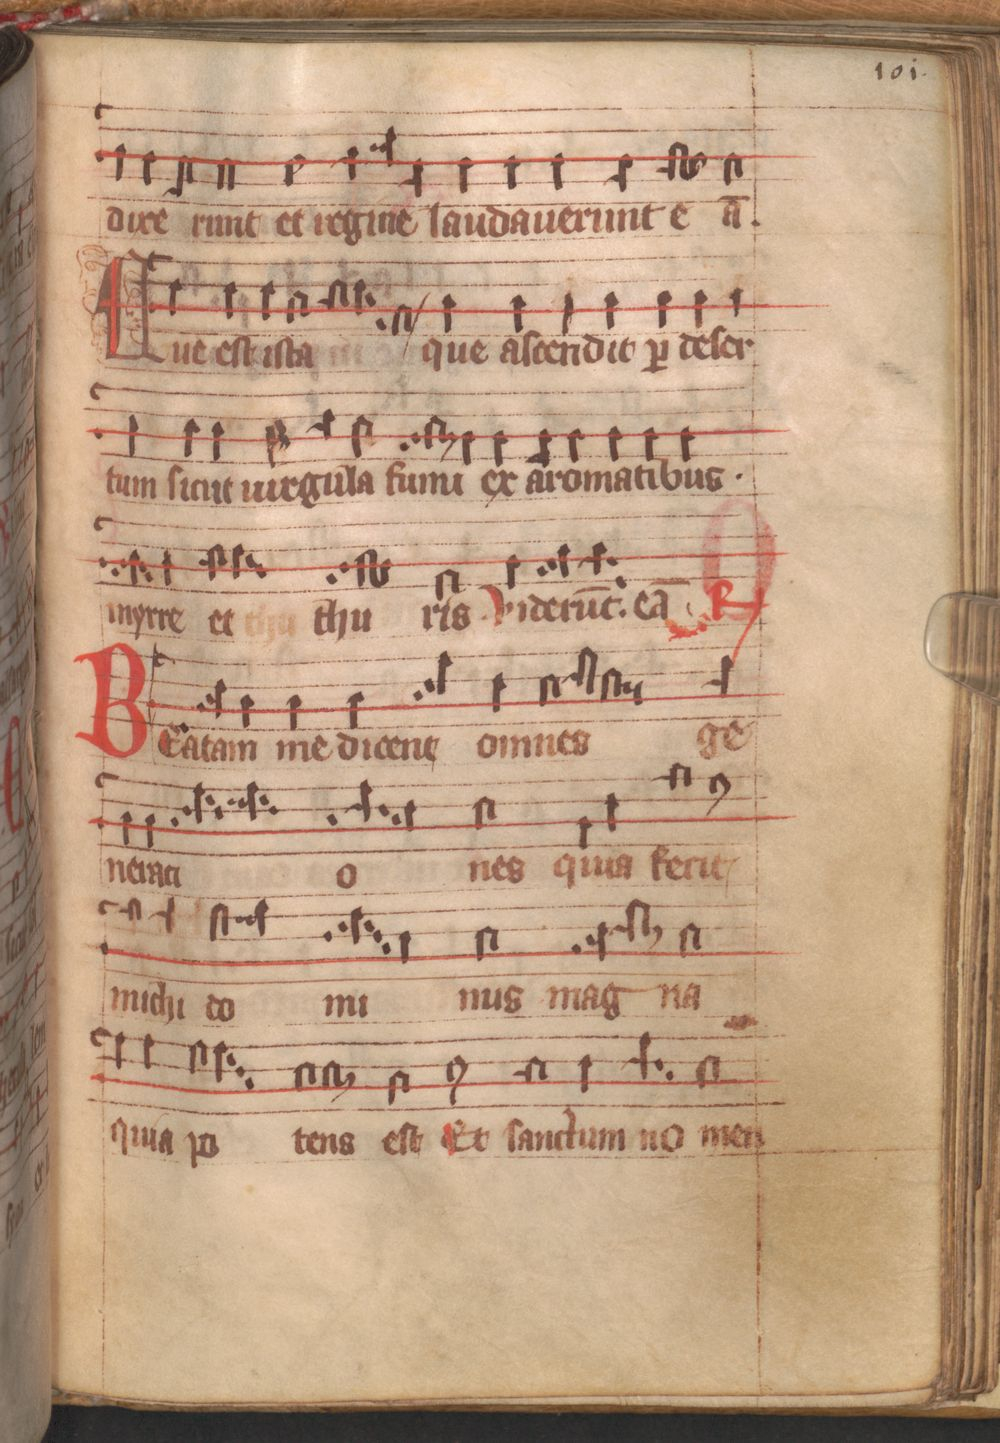 101.
dixe runt et regine laudauerunt e ā.
Que est ista que ascendit p deser
tum sicut uirgula fumi ex aromatibus.
myrre et thu thu ris Uiderūt. eā R
BEatam me dicent omnes ge
nerati o nes quia fecit
michi do mi nus mag na
quia po tens est Et sanctum no men